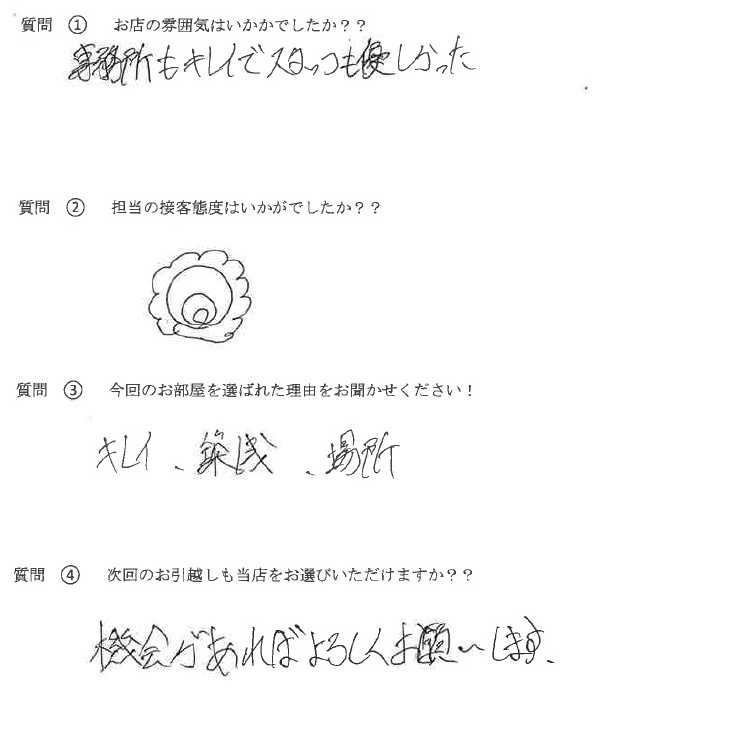 質問 ① お店の雰囲気はいかかでしたか？？
事務所もキレイでスタッフも優しかった
質問 ② 担当の接客態度はいかがでしたか？？
質問 ③ 今回のお部屋を選ばれた理由をお聞かせください！
キレイ、築浅、場所
質問 ④ 次回のお引越しも当店をお選びいただけますか？？
機会があればよろしくお願いします、